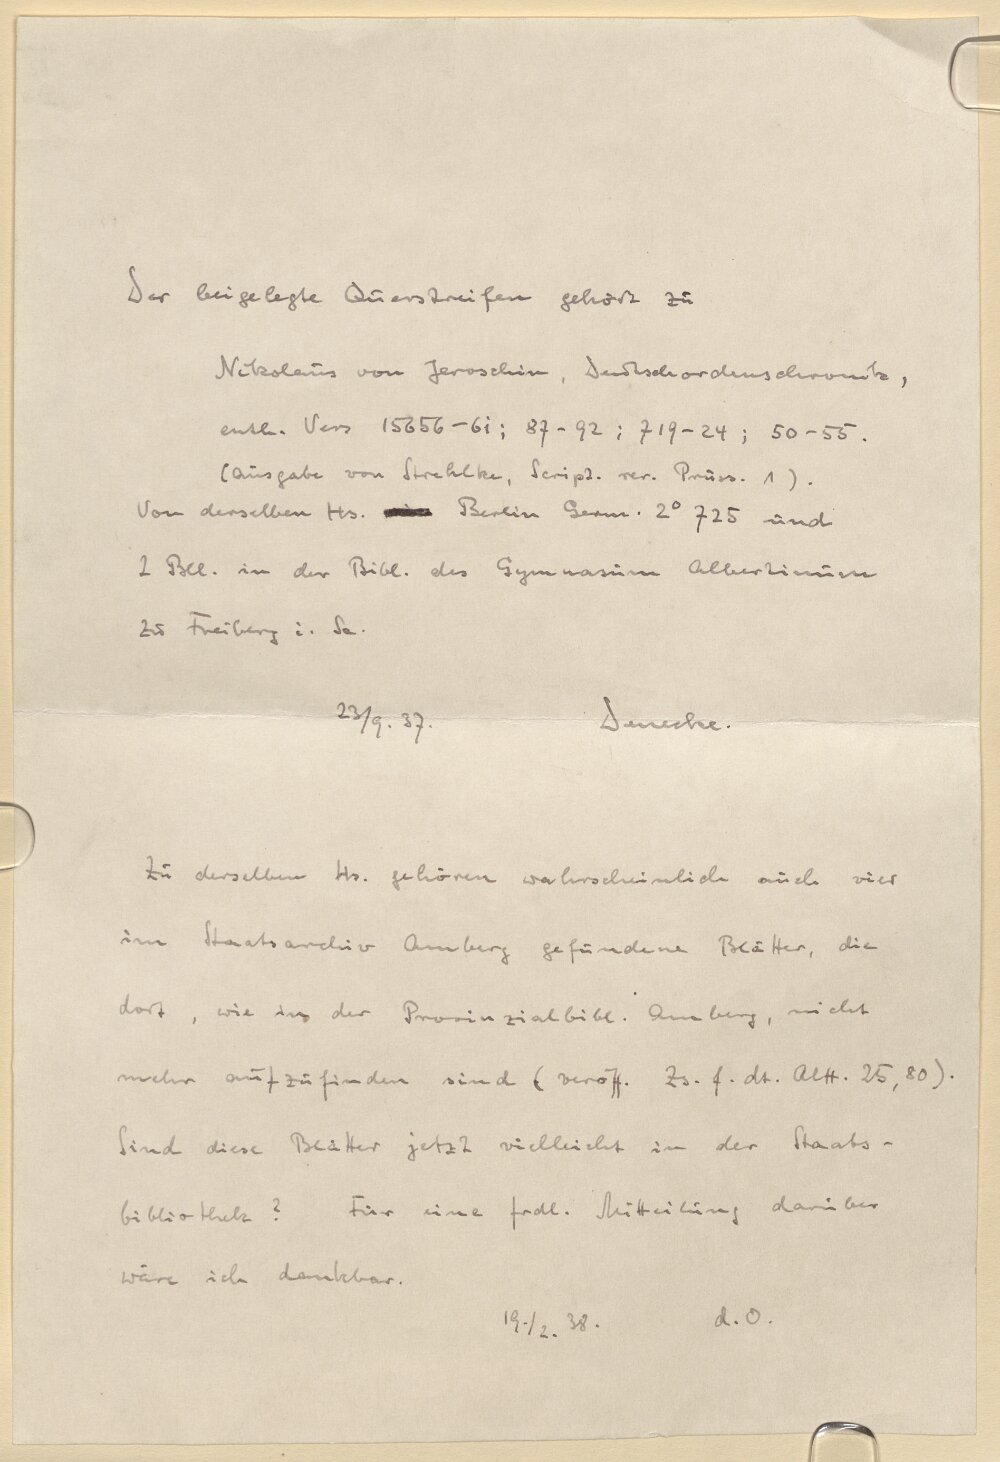 Der beigelegte Querstreifen gehört zu
Nikolaus von Jeroschin, Deutschordenschronik,
enth. Vers 15656-61; 87-92; 719-24; 50-55.
(Ausgabe von Strehlke, Script. rer. Pruss. 1).
Von derselben Hs. Berlin Germ. 2° 725 und
2 Bll. in der Bibl. des Gymnasium Albertinum
zu Freiberg i. Sa.
23/9. 37. Denecke.
Zu derselben Hs. gehören wahrscheinlich auch vier
im Staatsarchiv Amberg gefundene Blätter, die
dort, wie in der Provinzialbibl. Amberg, nicht
mehr aufzufinden sind (veröff. Zs. f. dt. Alt. 25,80).
Sind diese Blätter jetzt vielleicht in der Staats-
bibliothek? Für eine frdl. Mitteilung darüber
wäre ich dankbar.
19./2. 38. d. O.